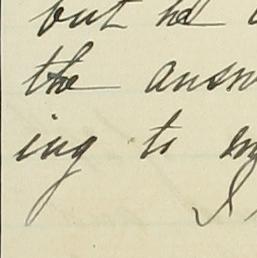 but he
the answ
ing to my
I